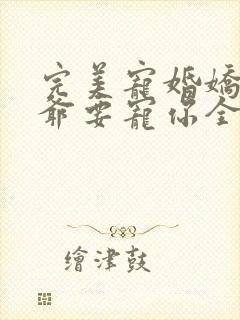 完美寵婚嬌
爺要寵你全
繪津鼓